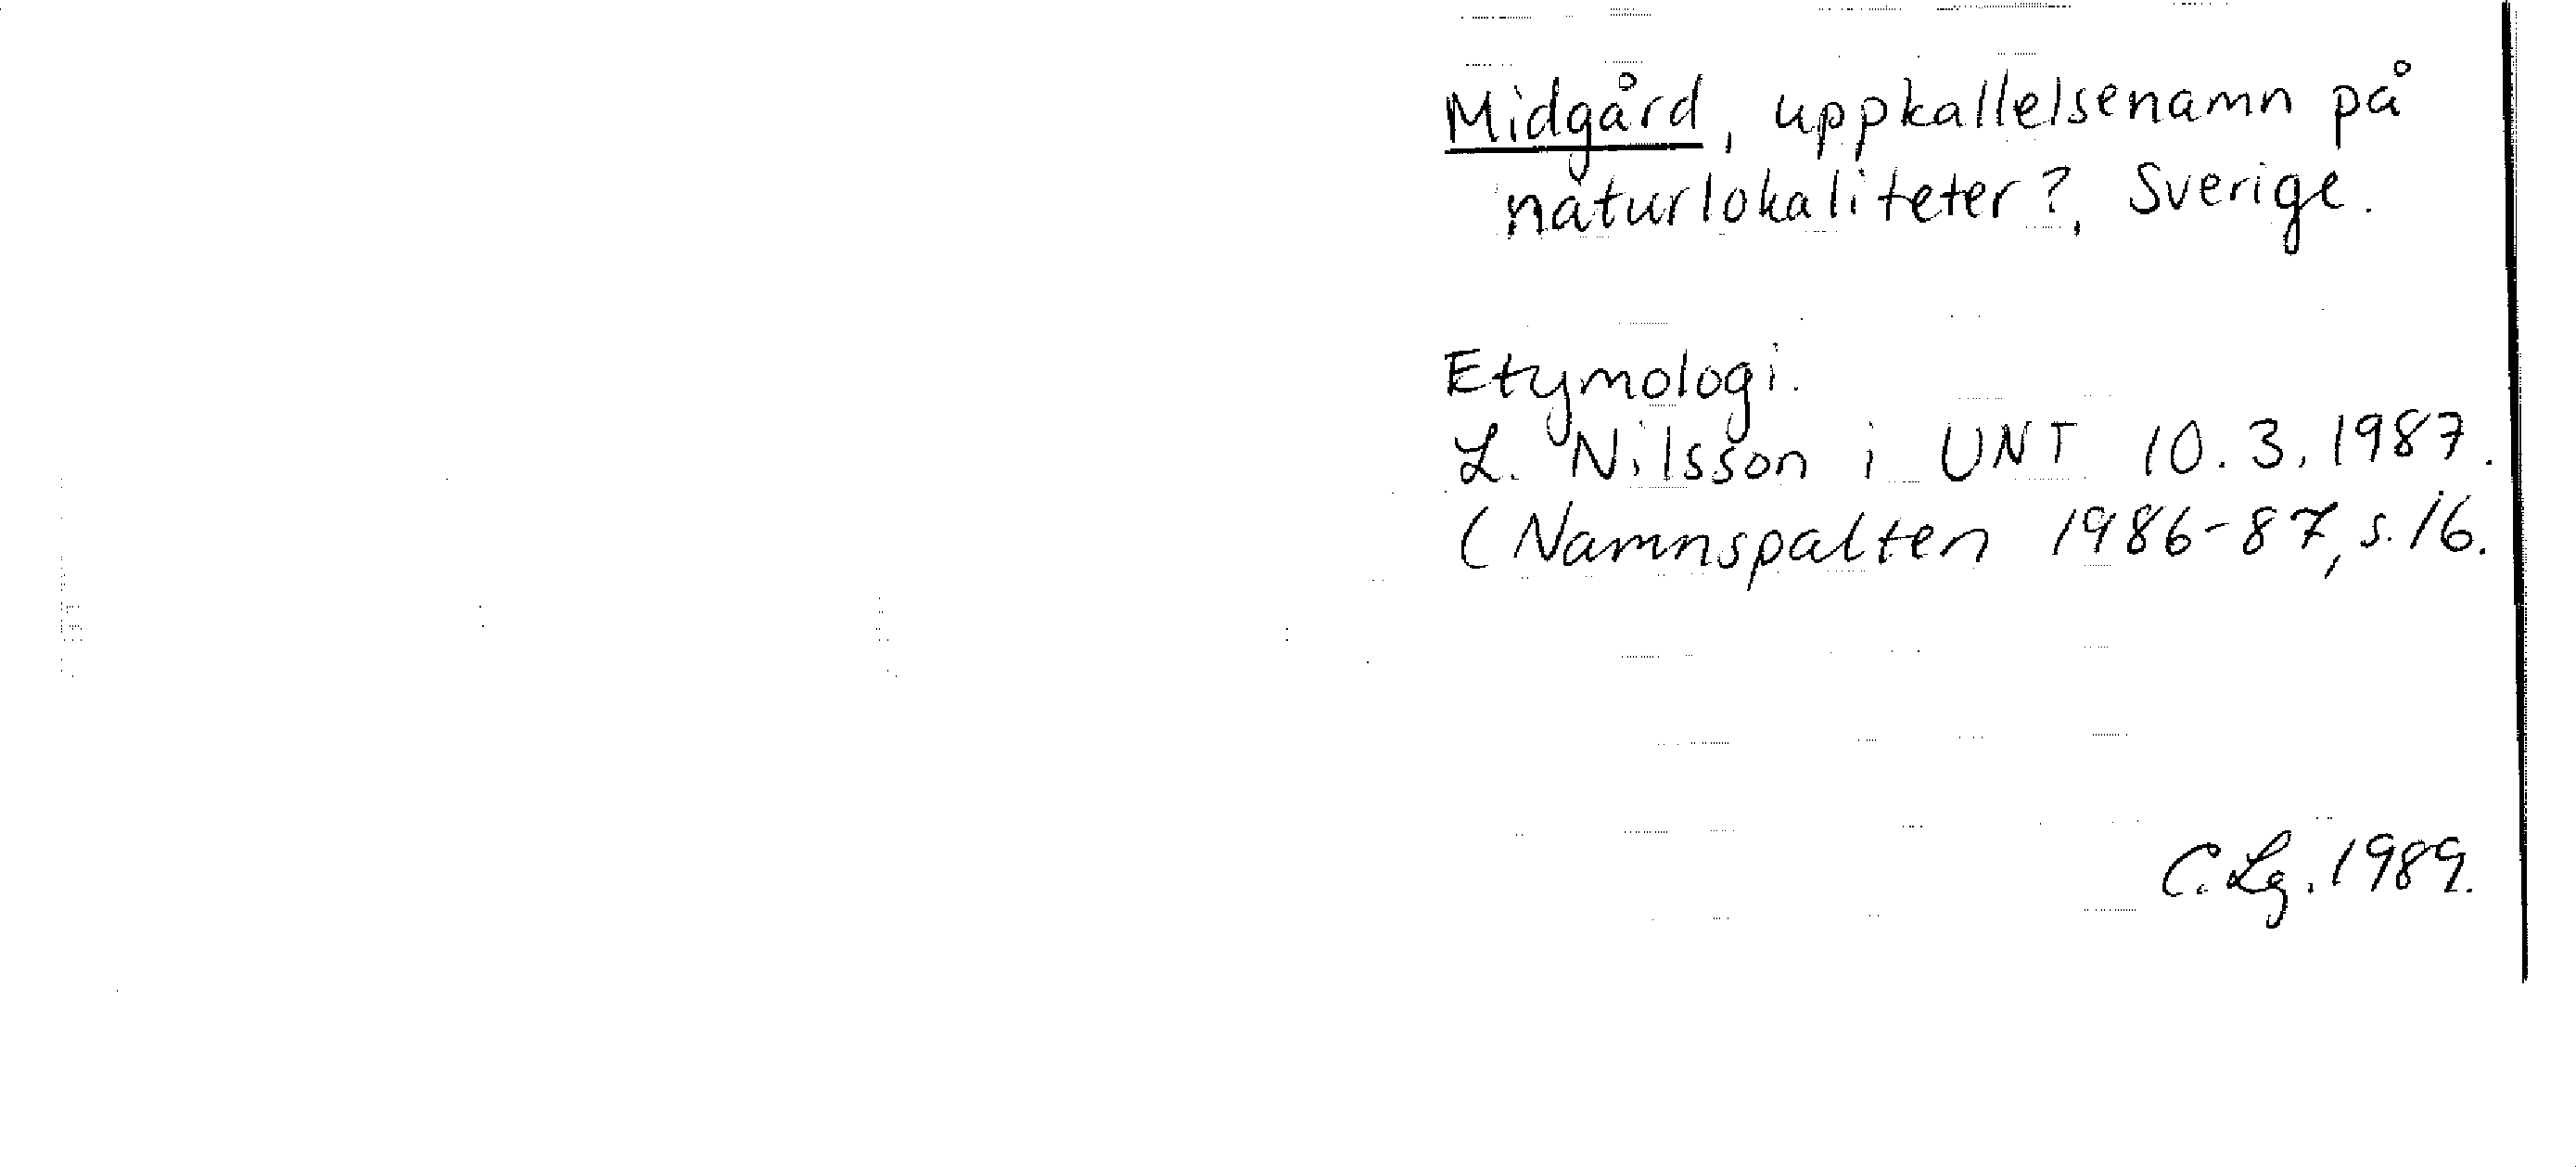 Midgård, uppkallelsenamn på
naturlokaliteter?, Sverige.
Etymologi.
L. Nilsson i UNT 10.3.1987.
(Namnspalten 1986-87, s. 16.
C. Lg. 1989.